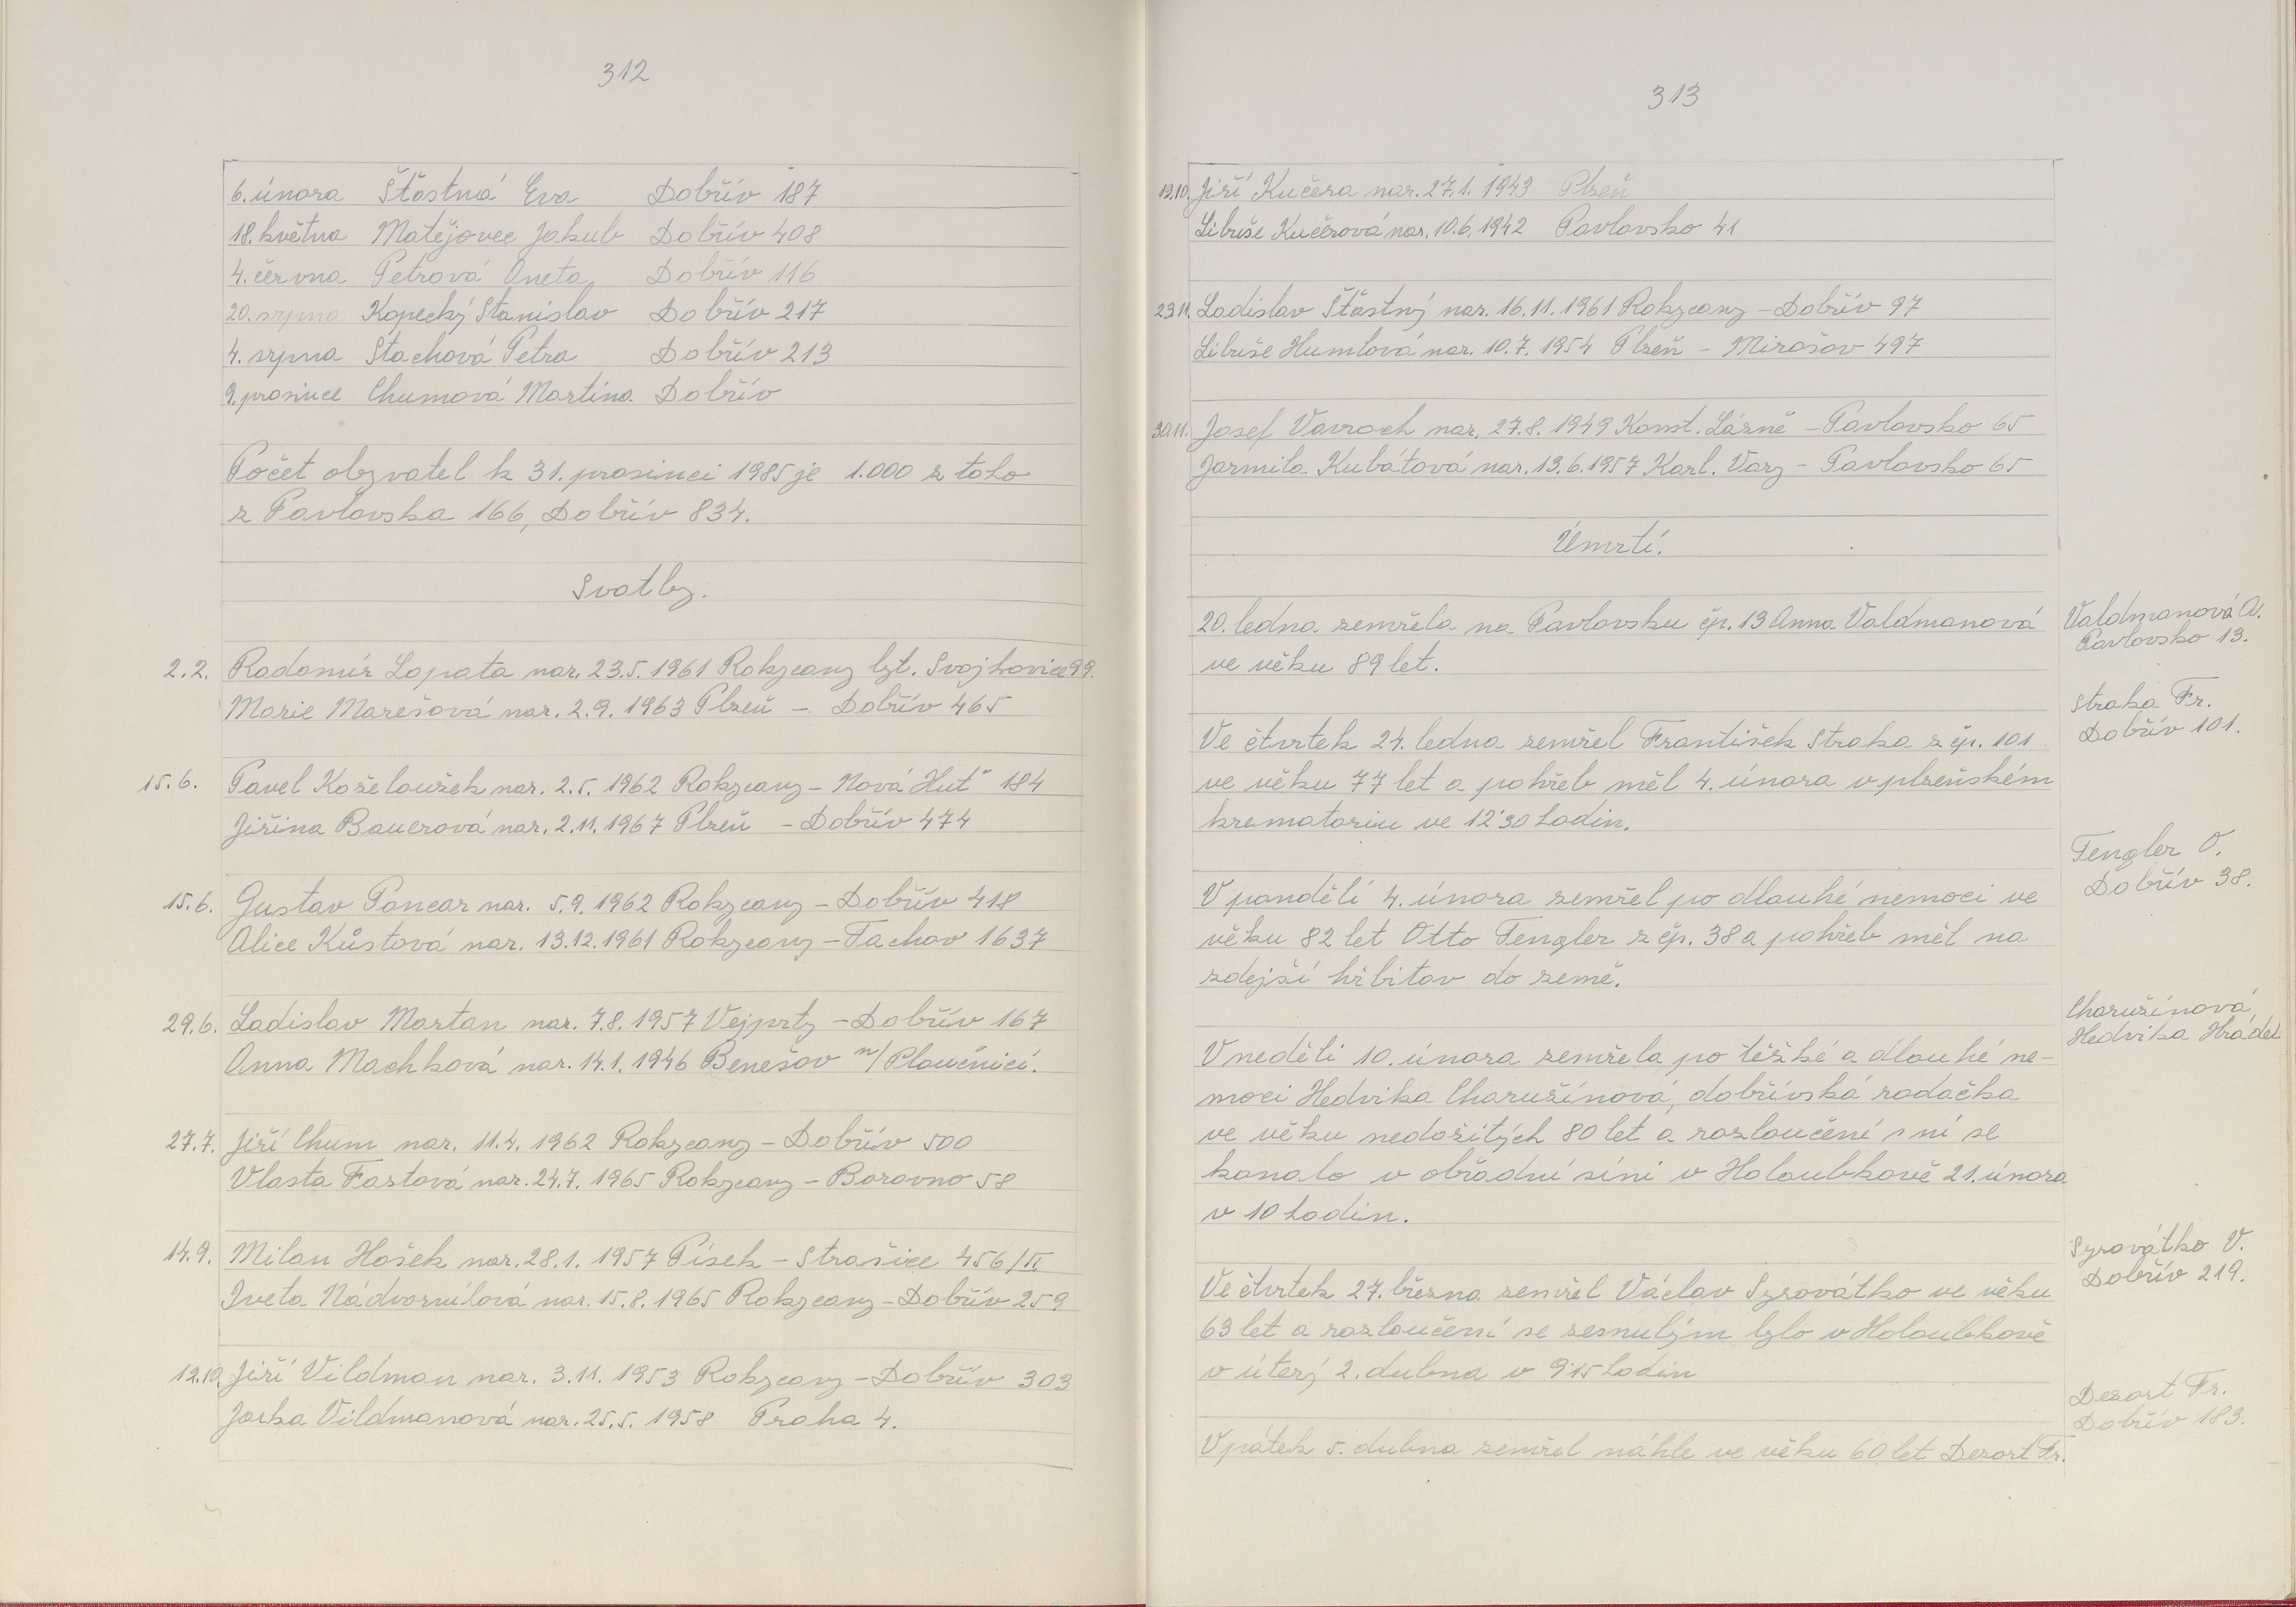 312
6. února Šťastná Eva Dobřív 187
18. května Matějovec Jakub Dobřív 408
4. června Petrová Aneta Dobřív 116
20. srpna Kopecký Stanislav Dobřív 217
4. srpna Stachová Petra Dobřív 213
9. prosince Chumová Martina Dobřív
Počet obyvatel k 31. prosinci 1985 je 1.000 z toho
z Pavlovska 166, Dobřív 834.
Svatby.
2.2. Radomír Lopata nar. 23.5. 1961 Rokycany byt. Svojkovice 99.
Marie Marešová nar. 2.9. 1963 Plzeň - Dobřív 465
15.6. Pavel Koželoužek nar. 2.5. 1962 Rokycany - Nová Huť 184
Jiřina Bauerová nar. 2.11. 1967 Plzeň - Dobřív 474
15.6. Gustav Pancar nar. 5.9. 1962 Rokycany - Dobřív 418
Alice Kůstová nar. 13.12. 1961 Rokycany - Tachov 1637
29.6. Ladislav Martan nar. 7.8. 1957 Vejprty - Dobřív 167
Anna Machková nar. 14.1. 1946 Benešov n/Ploučnicí.
27.7. Jiří Chum nar. 11.4. 1962 Rokycany - Dobřív 500
Vlasta Fastová nar. 24.7. 1965 Rokycany - Borovno 58
14.9. Milan Hošek nar. 28.1. 1957 Písek - Strašice 456/II
Iveta Nádvorníková nar. 15.8. 1965 Rokycany - Dobřív 259
12.10. Jiří Vildman nar. 3.11. 1953 Rokycany - Dobřív 303
Jarka Vildmanová nar. 25.5. 1958 Praha 4.
313
19.10. Jiří Kučera nar. 27.1. 1943 Plzeň
Libuše Kučerová nar. 10.6. 1942 Pavlovsko 41
23.11. Ladislav Šťastný nar. 16.11. 1961 Rokycany - Dobřív 97
Libuše Humlová nar. 10.7. 1954 Plzeň - Mirošov 497
30.11. Josef Vavroch nar. 27.8. 1949 Konst. Lázně - Pavlovsko 65
Jarmila Kubátová nar. 13.6. 1957 Karl. Vary - Pavlovsko 65
Úmrtí.
20. ledna zemřela na Pavlovsku čp. 13 Anna Valdmanová
ve věku 89 let.
Valdmanová A.
Pavlovsko 13.
Ve čtvrtek 24. ledna zemřel František Straka z čp. 101
ve věku 77 let a pohřeb měl 4. února v plzeňském
krematoriu ve 12'30 hodin.
Straka Fr.
Dobřív 101.
V pondělí 4. února zemřel po dlouhé nemoci ve
věku 82 let Otto Tengler z čp. 38 a pohřeb měl na
zdejší hřbitov do země.
Tengler O.
Dobřív 38.
V neděli 10. února zemřela po těžké a dlouhé ne-
moci Hedvika Charužínová, dobřívská rodačka
ve věku nedožitých 80 let a rozloučení s ní se
konalo v obřadní síni v Holoubkově 21. února
v 10 hodin.
Charužínová
Hedvika Hrádek
Ve čtvrtek 27. března zemřel Václav Syrovátko ve věku
63 let a rozloučení se zesnulým bylo v Holoubkově
v úterý 2. dubna v 9'15 hodin
Syrovátko V.
Dobřív 219.
V pátek 5. dubna zemřel náhle ve věku 60 let Dezort Fr.
Dezort Fr.
Dobřív 183.